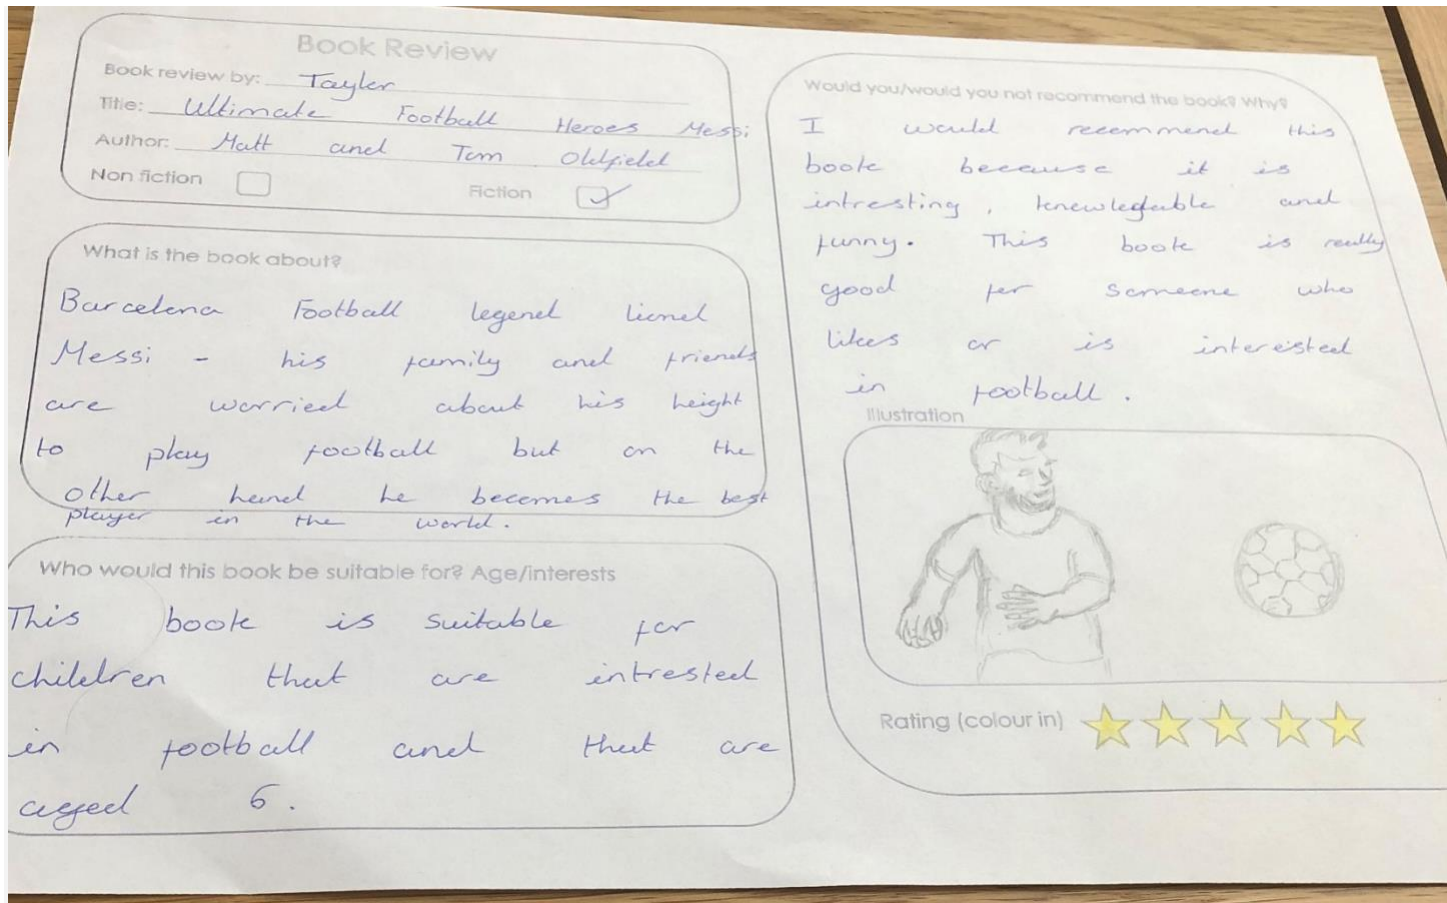 Book Review
Book review by: Tayler
Title: Ultimate Football Heroes Messi
Author: Matt and Tom Oldfield
Non fiction
Fiction
What is the book about?
Barcelona Football legend Lionel
Messi - his family and friends
are worried about his height
to play football but on the
other hand he becomes the best
player in the world.
Who would this book be suitable for? Age/interests
This book is suitable for
children that are intrested
in football and that are
aged 6.
Would you/would you not recommend the book? Why?
I would recommend this
book because it is
intresting, knowledgable and
funny. This book is really
good for someone who
likes or is interested
in football.
Illustration
Rating (colour in)